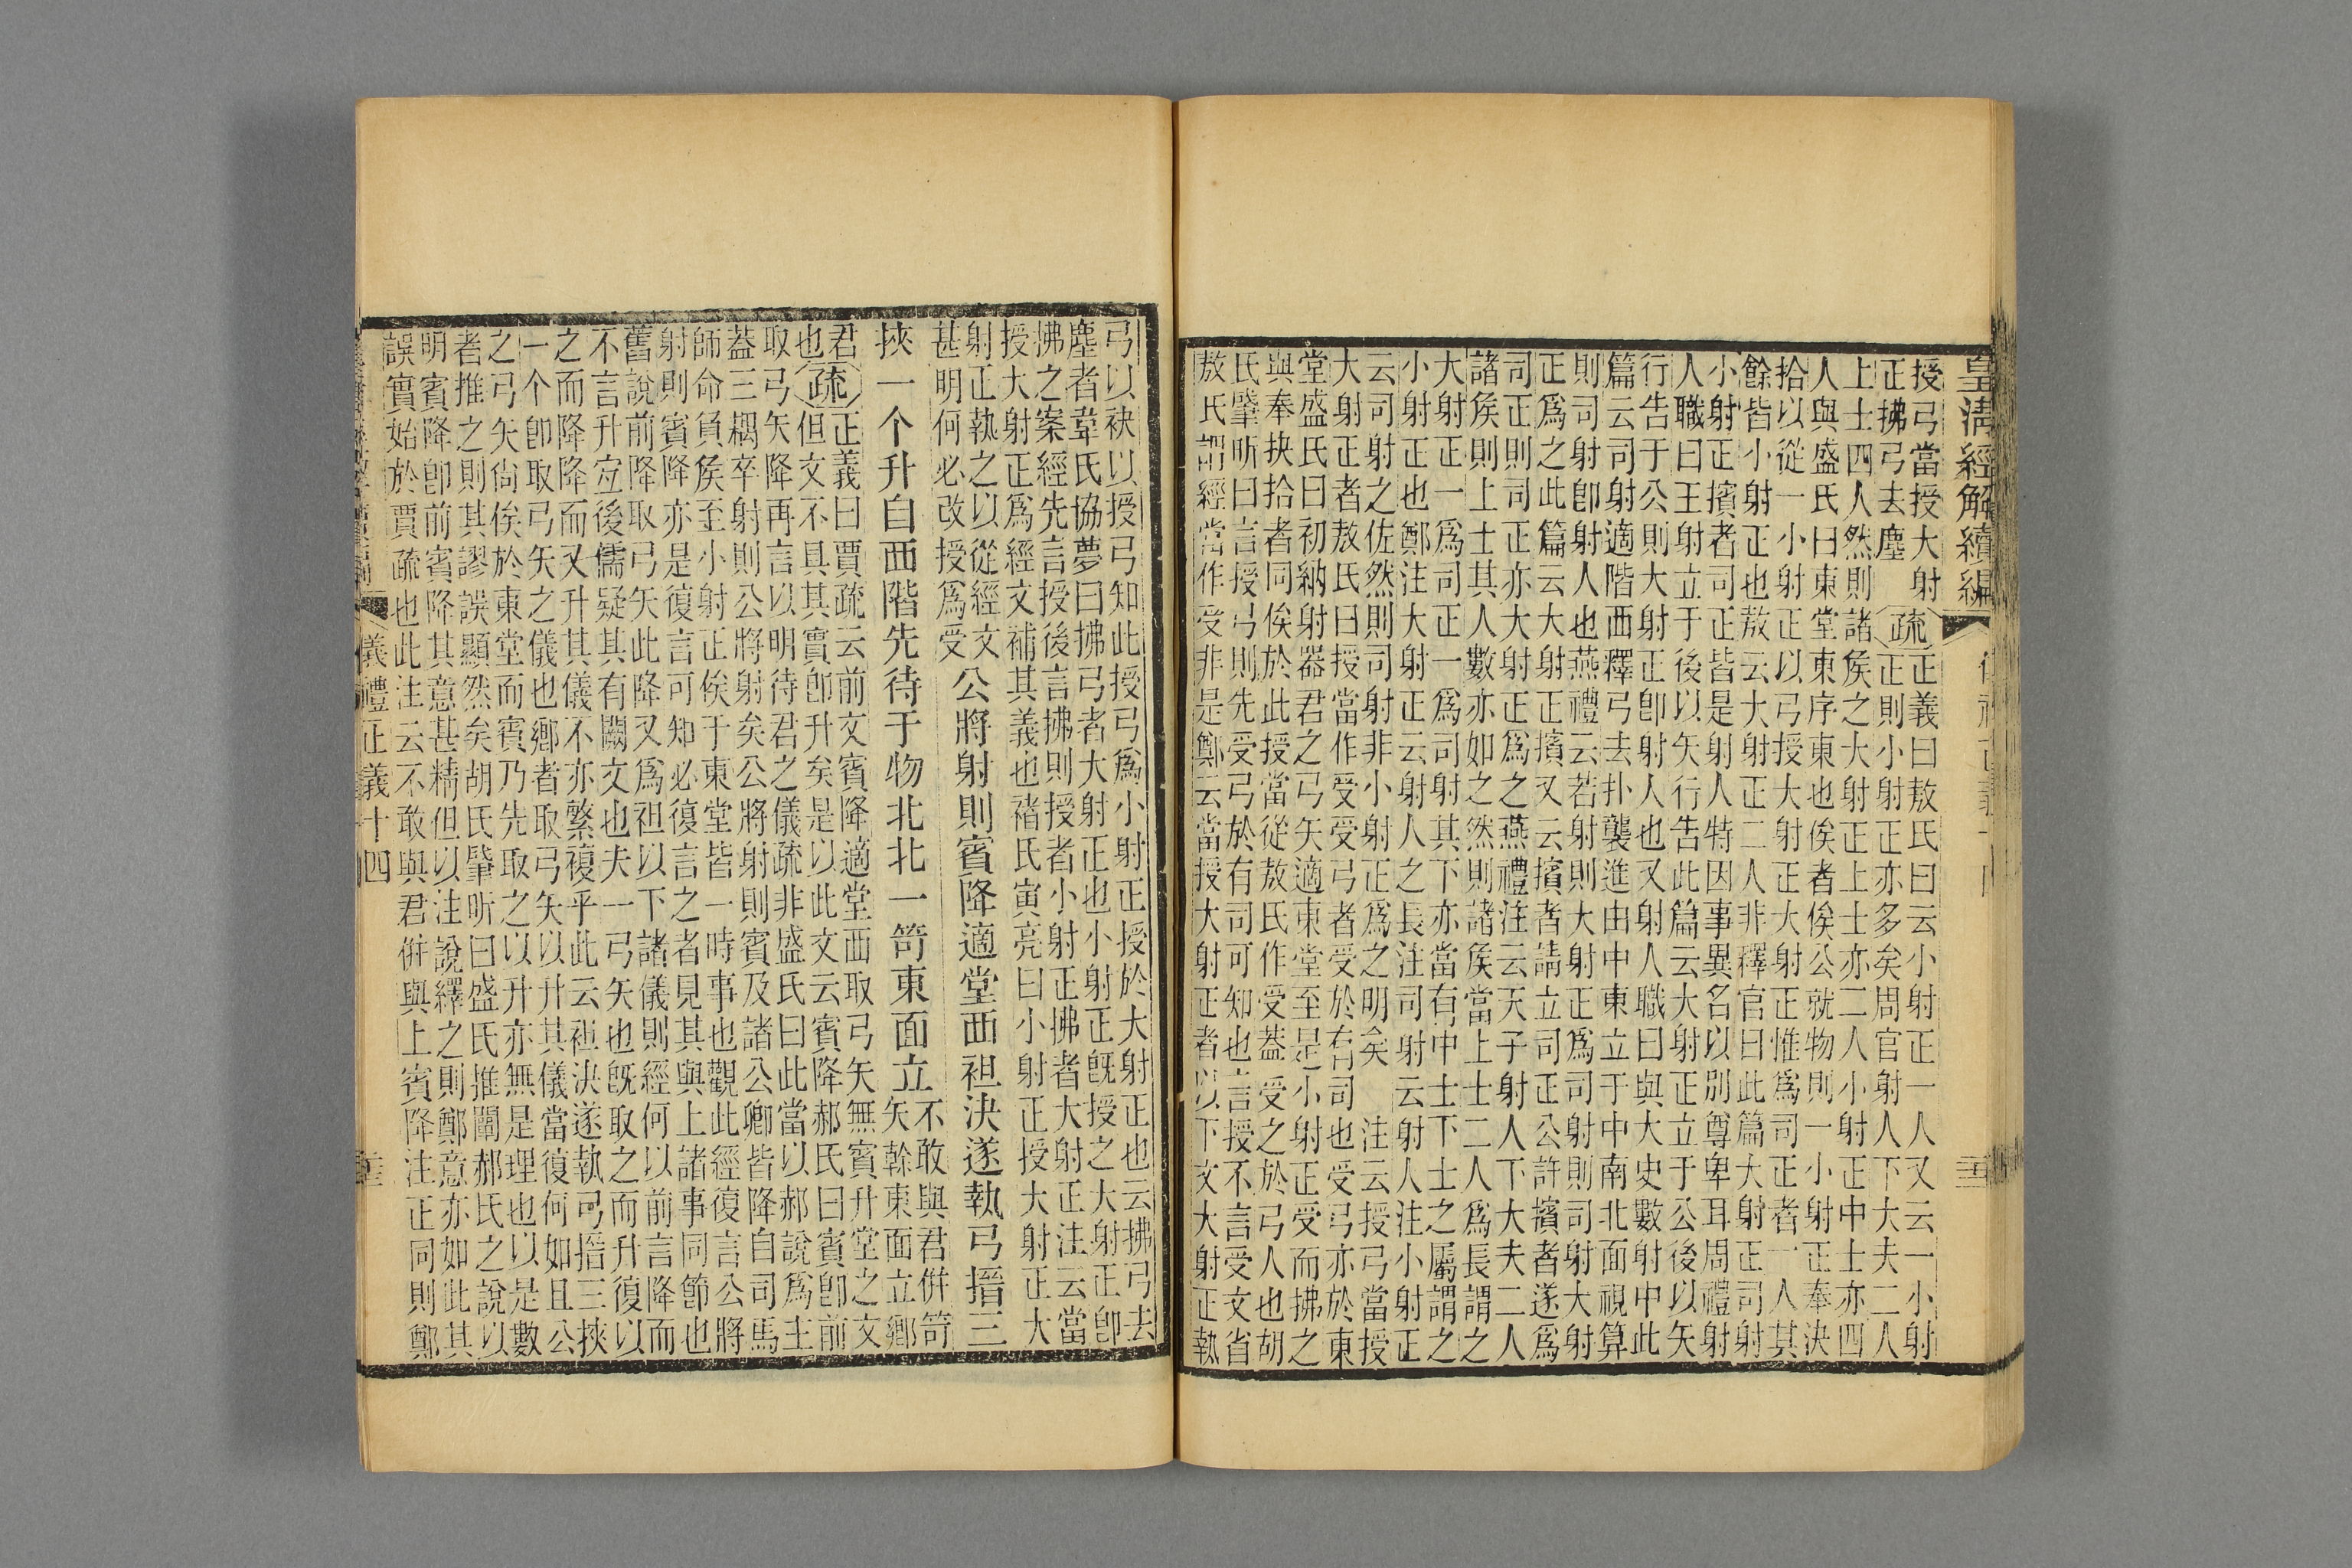 皇清經解續編
授弓當授大射
正拂弓去塵疏正義曰敖氏曰云小射正一人又云一小射
正則小射正亦多矣周官射人下大夫二人
上士四人然則諸矦之大射正上士亦二人小射正中士亦四
人與盛氏曰東堂東序東也俟者俟公就物則一小射正奉決
拾以從一小射正以弓授大射正大射正惟爲司正者一人其
餘皆小射正也敖云大射正二人非釋官曰此篇大射正司射
小射正擯者司正皆是射人特因事異名以別尊卑耳周禮射
人職曰王射立于後以矢行告此篇云大射正立于公後以矢
行告于公則大射正卽射人也又射人職曰與大史數射中此
篇云司射適階西釋弓去扑襲進由中東立于中南北面視算
則司射卽射人也燕禮云若射則大射正爲司射則司射大射
正爲之此篇云大射正擯又云擯者請立司正公許擯者遂爲
司正則司正亦大射正爲之燕禮注云天子射人下大夫二人
諸矦則上士其人數亦如之然則諸矦當上士二人爲長謂之
大射正一爲司正一爲司射其下亦當有中士下士之屬謂之
小射正也鄭注大射正云射人之長注司射云射人注小射正
云司射之佐然則司射非小射正爲之明矣　注云授弓當授
大射正者敖氏曰授當作受受弓者受於有司也受弓亦於東
堂盛氏曰初納射器君之弓矢適東堂至是小射正受而拂之
與奉抉拾者同俟於此授當從敖氏作受蓋受之於弓人也胡
氏肇昕曰言授弓則先受弓於有司可知也言授不言受文省
敖氏謂經當作受非是鄭云當授大射正者以下文大射正執
弓以袂以授弓知此授弓爲小射正授於大射正也云拂弓去
塵者韋氏協夢曰拂弓者大射正也小射正旣授之大射正卽
拂之案經先言授後言拂則授者小射正拂者大射正注云當
授大射正爲經文補其義也褚氏寅亮曰小射正授大射正大
射正執之以從經文
甚明何必改授爲受公將射則賓降適堂西袒決遂執弓搢三
挾一个升自西階先待于物北北一笴東面立不敢與君併笴
矢幹東面立鄉
君
也疏正義曰賈疏云前文賓降適堂西取弓矢無賓升堂之文
但文不具其實卽升矣是以此文云賓降郝氏曰賓卽前
取弓矢降再言以明待君之儀疏非盛氏曰此當以郝說爲主
蓋三耦卒射則公將射矣公將射則賓及諸公卿皆降自司馬
師命負矦至小射正俟于東堂皆一時事也觀此經復言公將
射則賓降亦是復言可知必復言之者見其與上諸事同節也
舊說前降取弓矢此降又爲袒以下諸儀則經何以前言降而
不言升宐後儒疑其有闕文也夫一弓矢也旣取之而升復以
之而降降而又升其儀不亦繁複乎此云袒決遂執弓搢三挾
一个卽取弓矢之儀也鄉者取弓矢以升其儀當復何如且公
之弓矢尙俟於東堂而賓乃先取之以升亦無是理也以是數
者推之則其謬誤顯然矣胡氏肇昕曰盛氏推闡郝氏之說以
明賓降卽前賓降其意甚精但以注說繹之則鄭意亦如此其
誤實始於賈疏也此注云不敢與君併與上賓降注正同則鄭
儀禮正義十四